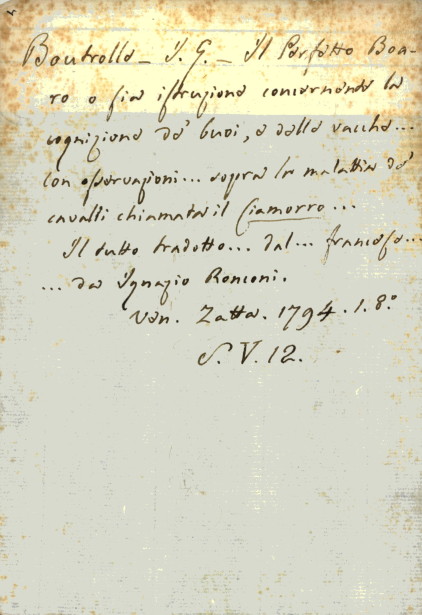 Boutrolle - J. G. - Il Perfetto Boa-
ro o sia istruzione concernente la
cognizione de' buoi, e delle vacche...
con osservazioni... sopra la malattia de'
cavalli chiamata il Ciamorro...
Il tutto tradotto... dal... francese...
... da Ignazio Ronconi.
Ven. Zatta. 1794. 1. 8.°
S. V. 12.